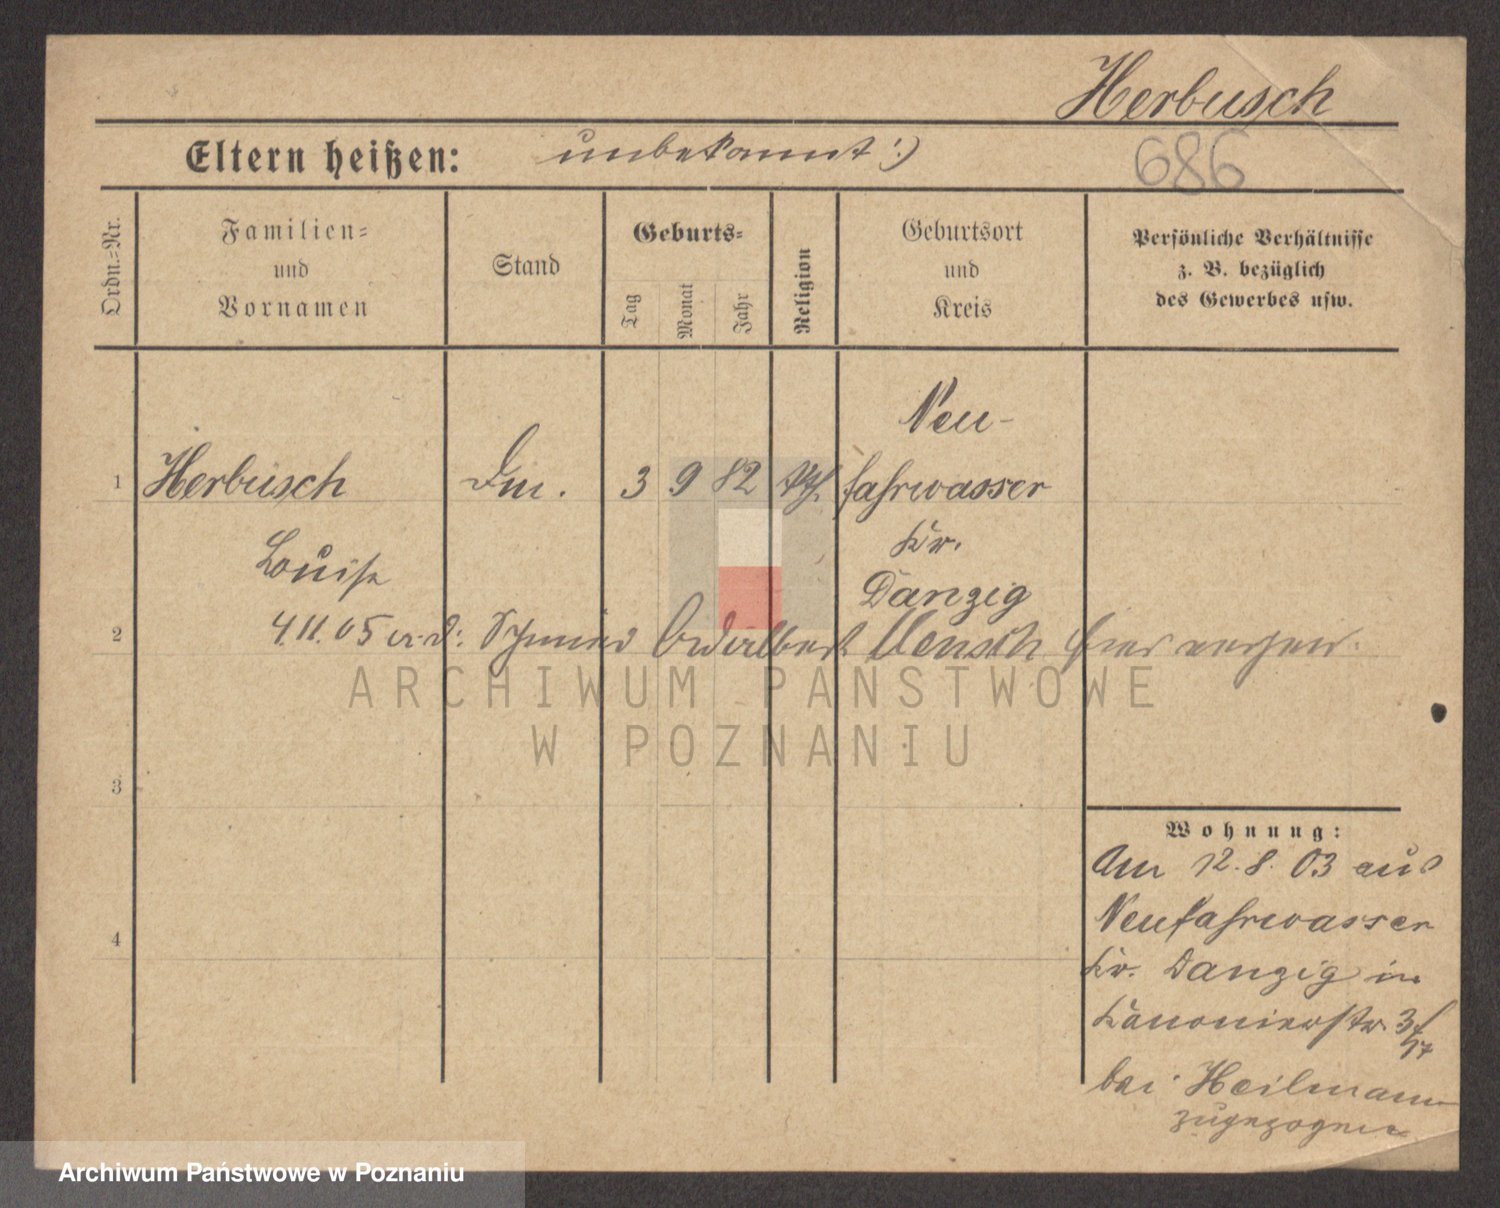 Herbusch
Eltern heißen: unbekannt
686
Ordn.=Nr.
Familien=
und
Vornamen
Stand
Geburts=
Tag
Monat
Jahr
Religion
Geburtsort
und
Kreis
Persönliche Verhältnisse
z. B. bezüglich
des Gewerbes usw.
Neu-
1 Herbusch 3 9 82 fahrwasser
Kr.
Louise
Danzig
2 4.11.05 Schmied Mensch
3
Wohnung:
Am 12.8.03 aus
Neufahrwasser
4
Kr. Danzig in
Kanonierstr. 3
bei Heilmann
zugezogen
ARCHIWUM PAŃSTWOWE
W POZNANIU
Archiwum Państwowe w Poznaniu